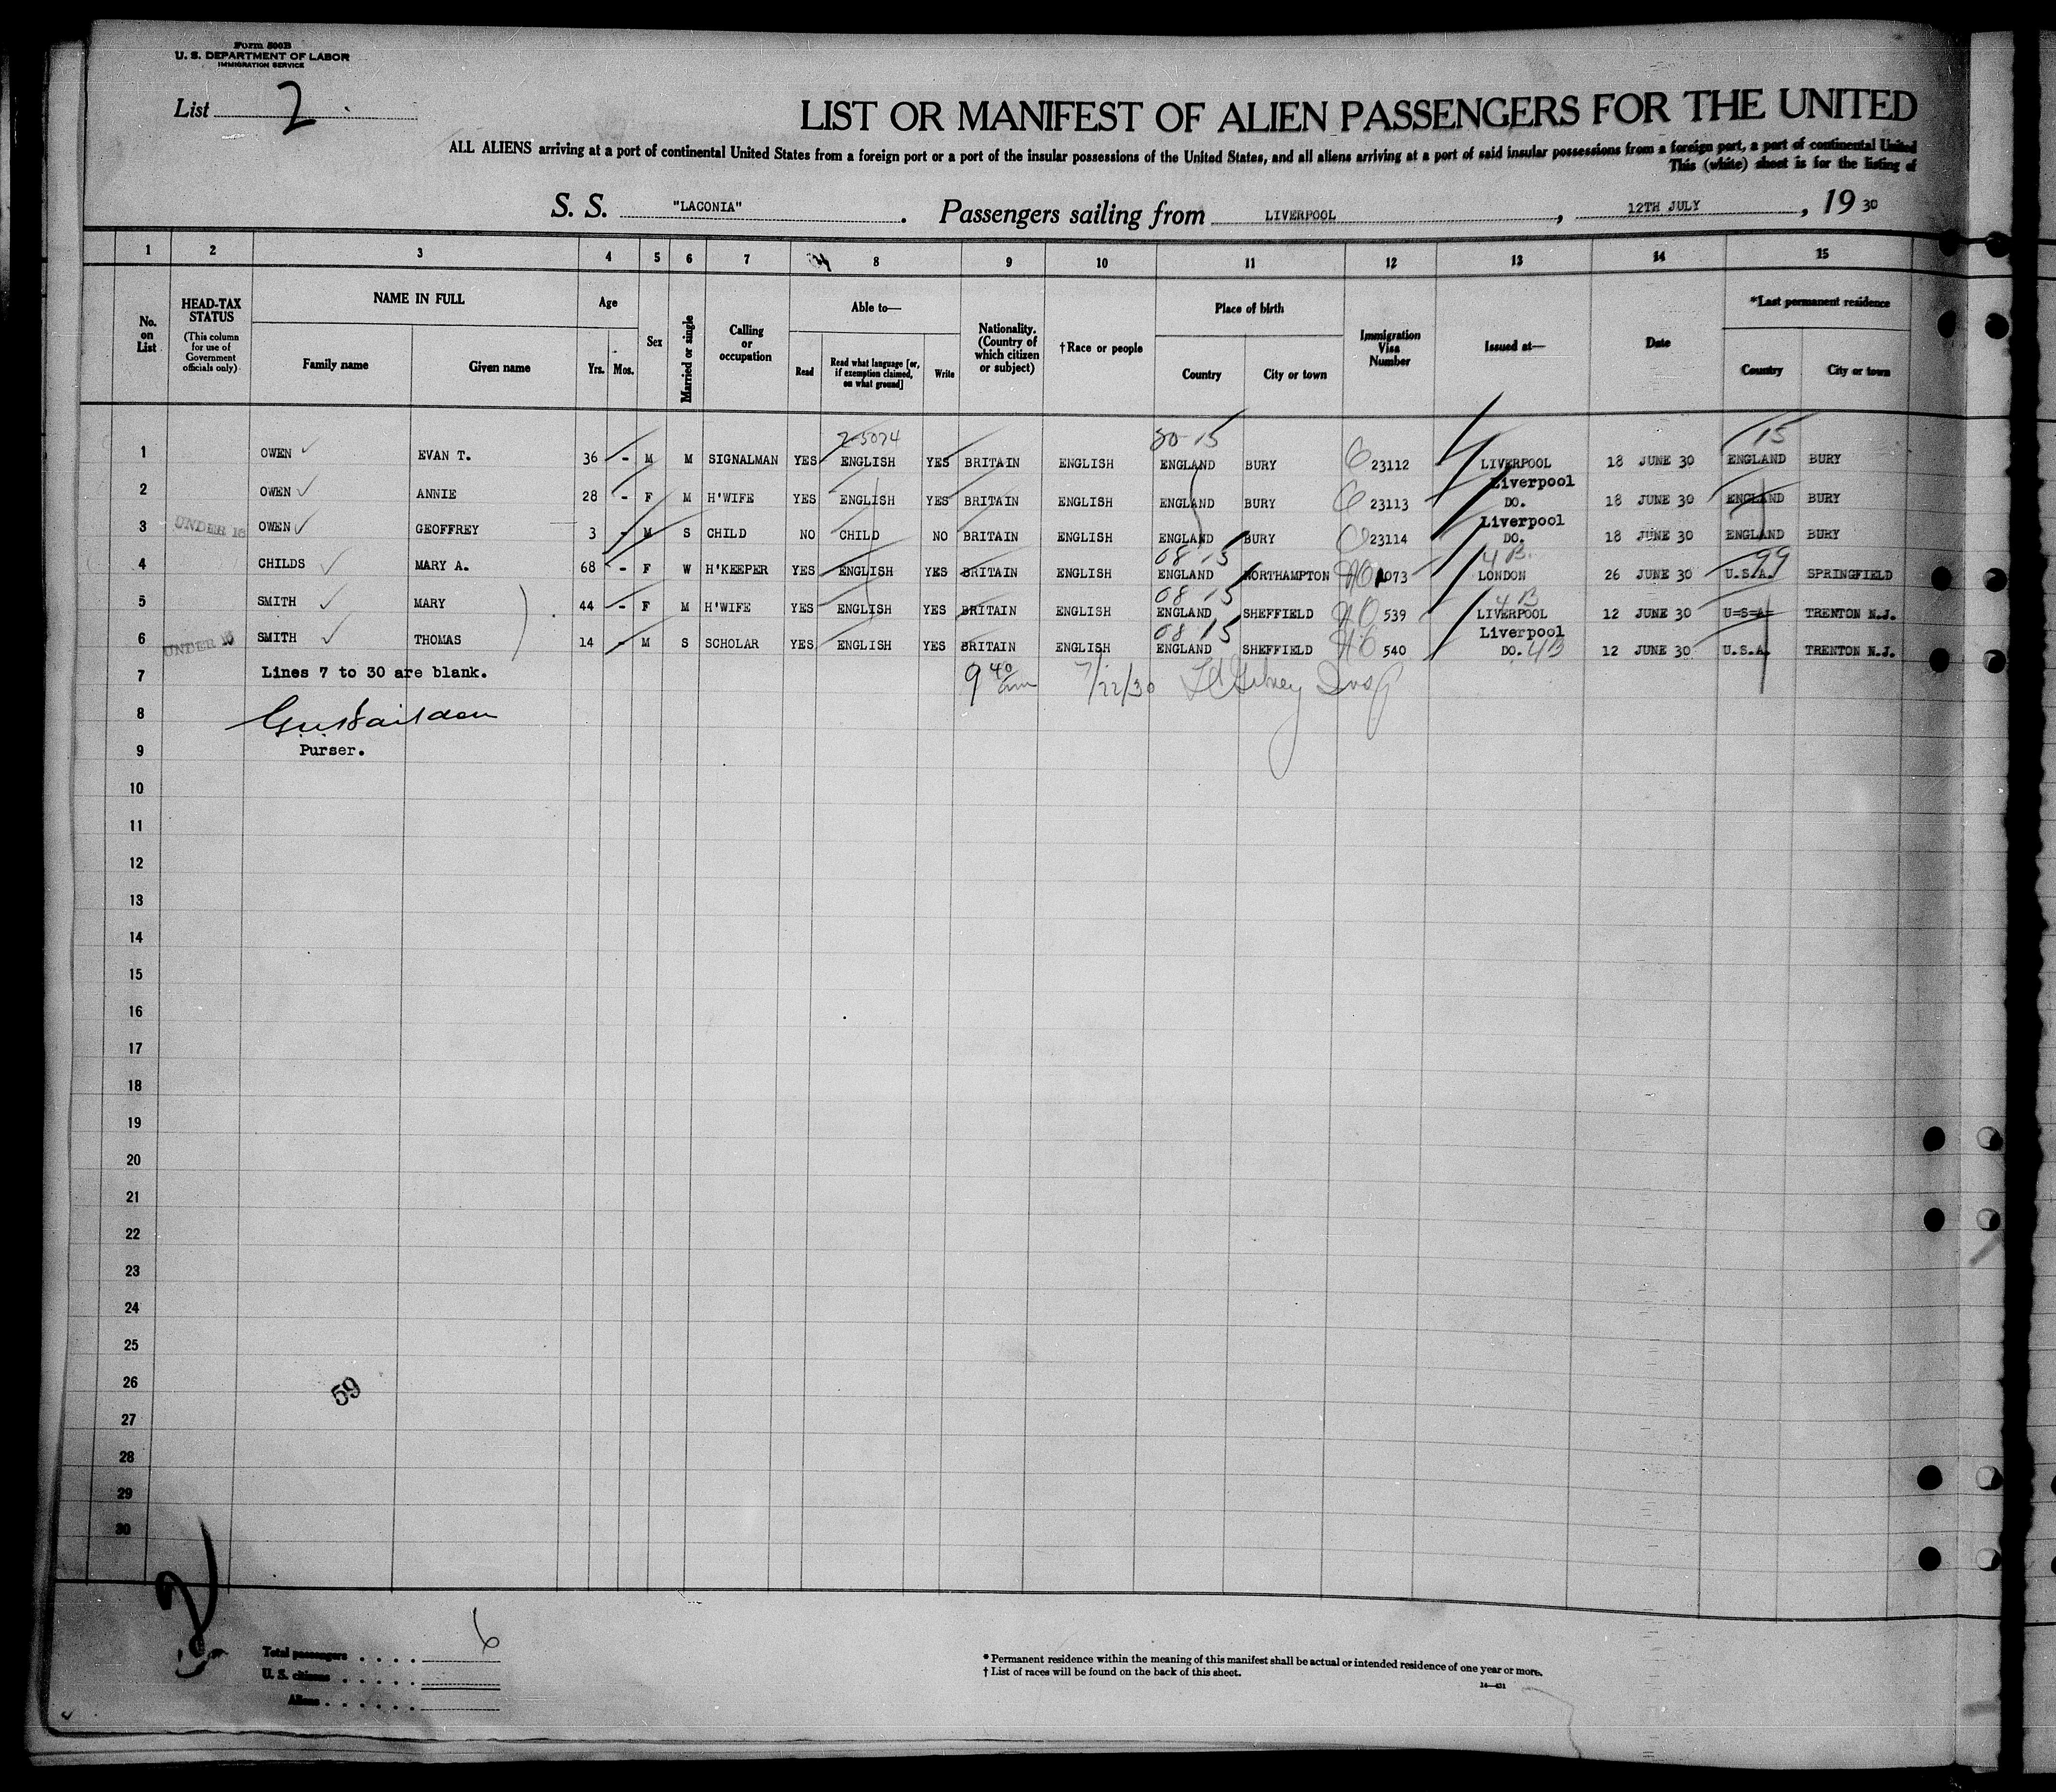 Form 500B
U. S. DEPARTMENT OF LABOR
IMMIGRATION SERVICE
List 2
LIST OR MANIFEST OF ALIEN PASSENGERS FOR THE UNITED
ALL ALIENS arriving at a port of continental United States from a foreign port or a port of the insular possessions of the United States, and all aliens arriving at a port of said insular possessions from a foreign port, a port of continental United
This (white) sheet is for the listing of
S. S. "LACONIA". Passengers sailing from LIVERPOOL, 12TH JULY, 19 30
1 2 3 4 5 6 7 8 9 10 11 12 13 14 15
No. on List
HEAD-TAX STATUS
(This column for use of Government officials only)
NAME IN FULL
Family name
Given name
Age
Yrs. Mos.
Sex
Married or single
Calling or occupation
Able to—
Read
Read what language [or, if exemption claimed, on what ground]
Write
Nationality. (Country of which citizen or subject)
†Race or people
Place of birth
Country
City or town
Immigration Visa Number
Issued at—
Date
*Last permanent residence
Country
City or town
2-5074 80-15 15
1 OWEN EVAN T. 36 - M M SIGNALMAN YES ENGLISH YES BRITAIN ENGLISH ENGLAND BURY 23112 LIVERPOOL 18 JUNE 30 ENGLAND BURY
Liverpool
2 OWEN ANNIE 28 - F M H'WIFE YES ENGLISH YES BRITAIN ENGLISH ENGLAND BURY 23113 DO. 18 JUNE 30 ENGLAND BURY
Liverpool
3 UNDER 16 OWEN GEOFFREY 3 - M S CHILD NO CHILD NO BRITAIN ENGLISH ENGLAND BURY 23114 DO. 18 JUNE 30 ENGLAND BURY
08 15 4 B. 99
4 CHILDS MARY A. 68 - F W H'KEEPER YES ENGLISH YES BRITAIN ENGLISH ENGLAND NORTHAMPTON 1073 LONDON 26 JUNE 30 U.S.A. SPRINGFIELD
08 15 4B
5 SMITH MARY 44 - F M H'WIFE YES ENGLISH YES BRITAIN ENGLISH ENGLAND SHEFFIELD 539 LIVERPOOL 12 JUNE 30 U=S=A= TRENTON N.J.
08 15 Liverpool
6 UNDER 16 SMITH THOMAS 14 - M S SCHOLAR YES ENGLISH YES BRITAIN ENGLISH ENGLAND SHEFFIELD 540 DO. 4B 12 JUNE 30 U.S.A. TRENTON N.J.
7 Lines 7 to 30 are blank. 9 40 am 7/22/30
8
9 Purser.
10
11
12
13
14
15
16
17
18
19
20
21
22
23
24
25
26
59
27
28
29
30
2
Total passengers . . . . 6
U. S. citizens . . . . .
Aliens . . . . . .
* Permanent residence within the meaning of this manifest shall be actual or intended residence of one year or more.
† List of races will be found on the back of this sheet.